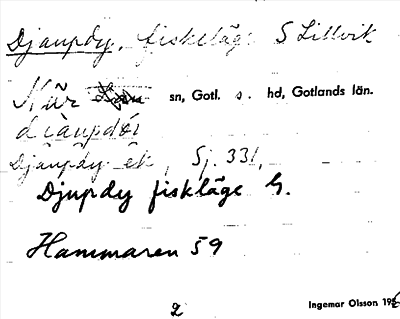 Djaupdy, fiskläge S Lillvik
När sn, Gotl. s. hd, Gotlands län.
diàupdói
Djàupdy ék, Sj. 331,
Djupdy fiskläge G.
Hammaren 59
2
Ingemar Olsson 195